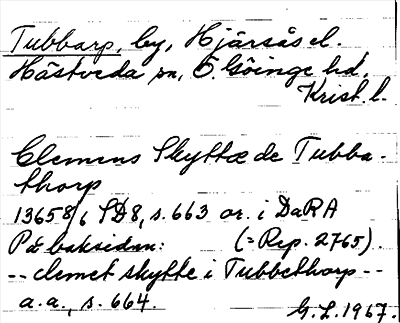 Tubbarp, by, Hjärsås el.
Hästveda sn, Ö. Göinge hd,
Krist. l.
Clemens Skyttæ de Tubba-
thorp
1365 8/6 SD8, s. 663 or. i DaRA
På baksidan: (= Rep. 2765).
-- clemet skytte i Tubbethorp --
a.a., s. 664.
G.L. 1967.